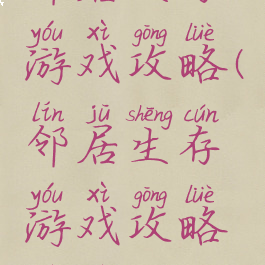 yóu xì gōng lüè
游戏攻略(
lín jū shēng cún
邻居生存
yóu xì gōng lüè
游戏攻略